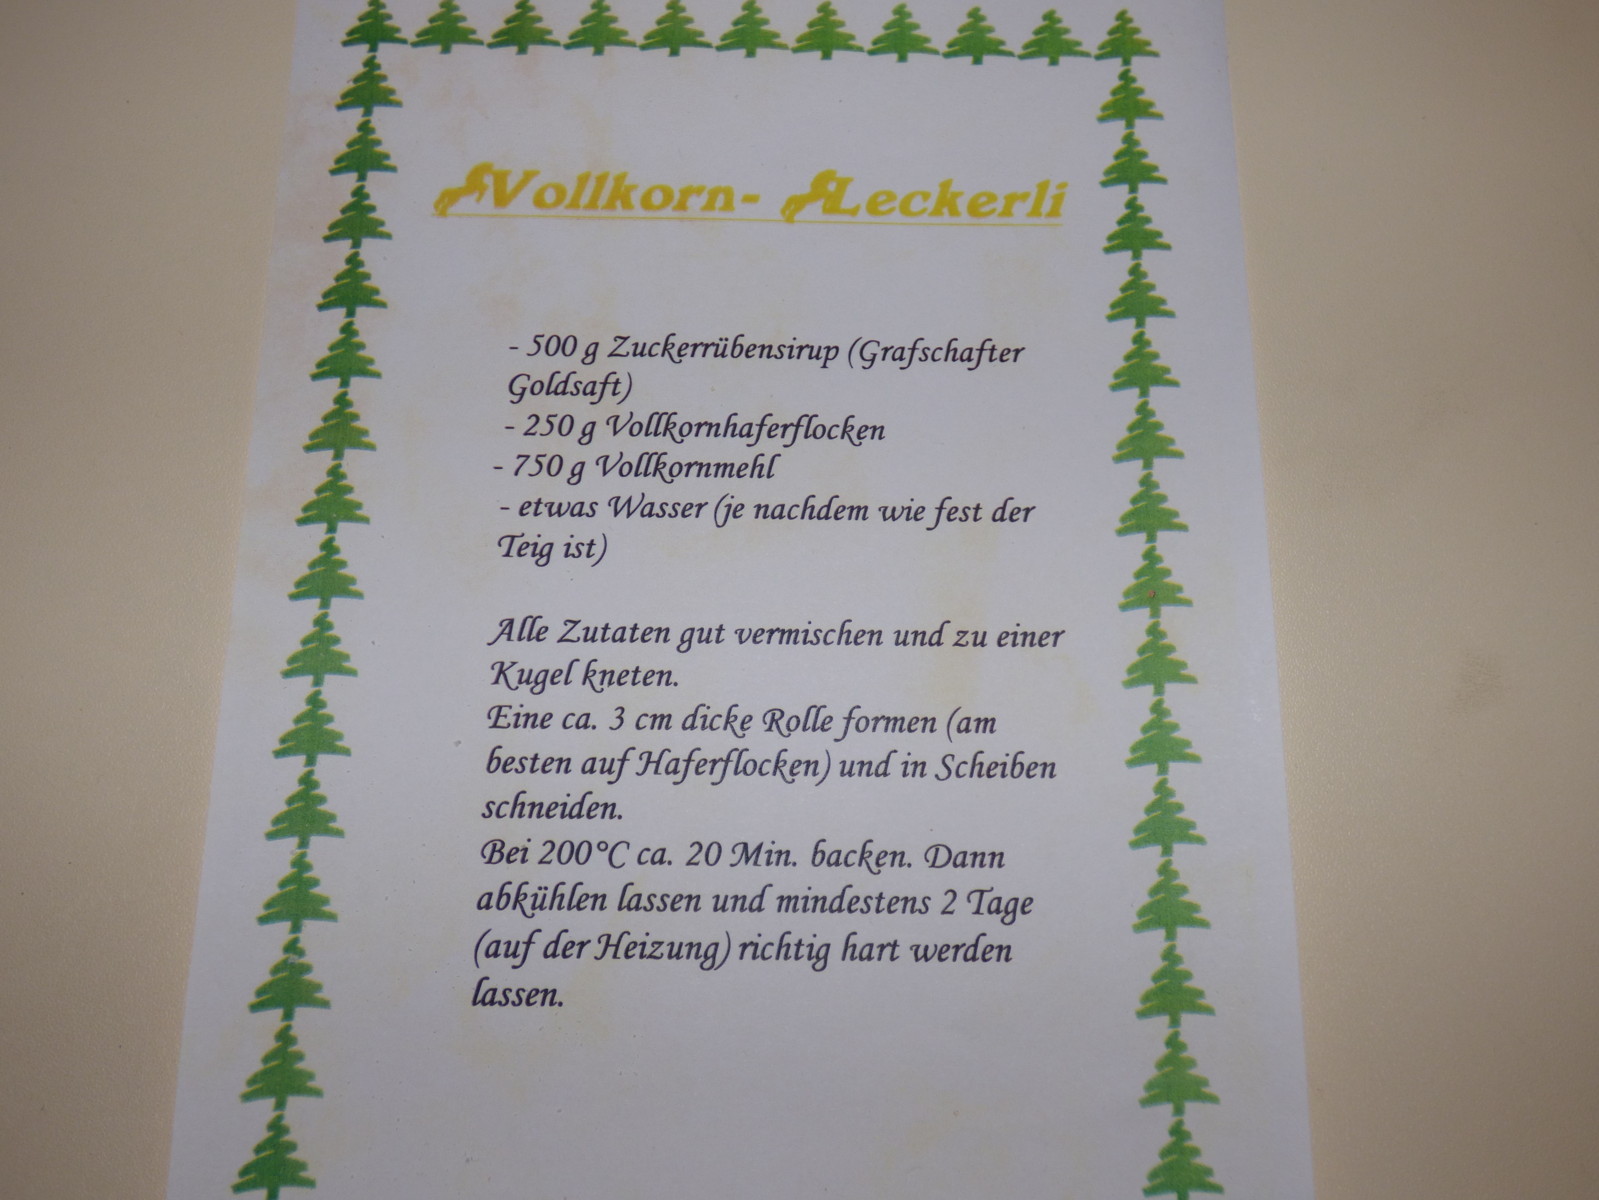 Vollkorn- Leckerli
- 500 g Zuckerrübensirup (Grafschafter
Goldsaft)
- 250 g Vollkornhaferflocken
- 750 g Vollkornmehl
- etwas Wasser (je nachdem wie fest der
Teig ist)
Alle Zutaten gut vermischen und zu einer
Kugel kneten.
Eine ca. 3 cm dicke Rolle formen (am
besten auf Haferflocken) und in Scheiben
schneiden.
Bei 200°C ca. 20 Min. backen. Dann
abkühlen lassen und mindestens 2 Tage
(auf der Heizung) richtig hart werden
lassen.